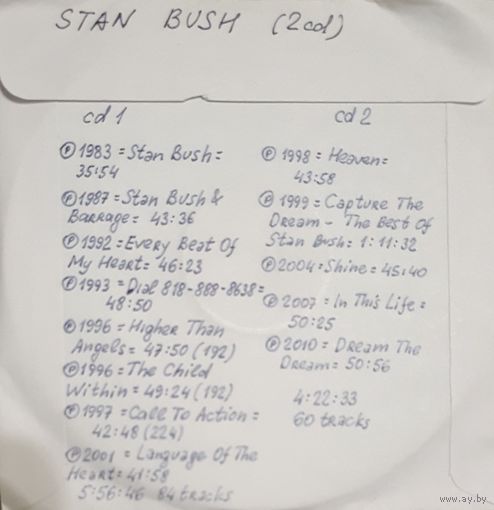 STAN BUSH (2cd)
cd 1
Ⓟ 1983 = Stan Bush =
35:54
Ⓟ 1987 = Stan Bush &
Barrage = 43:36
Ⓟ 1992 = Every Beat Of
My Heart = 46:23
Ⓟ 1993 = Dial 818-888-8638 =
48:50
Ⓟ 1996 = Higher Than
Angels = 47:50 (192)
Ⓟ 1996 = The Child
Within = 49:24 (192)
Ⓟ 1997 = Call To Action =
42:48 (224)
Ⓟ 2001 = Language Of The
Heart = 41:58
5:56:46 84 tracks
cd 2
Ⓟ 1998 = Heaven =
43:58
Ⓟ 1999 = Capture The
Dream - The Best Of
Stan Bush = 1:11:32
Ⓟ 2004 = Shine = 45:40
Ⓟ 2007 = In This Life =
50:25
Ⓟ 2010 = Dream The
Dream = 50:56
4:22:33
60 tracks
www.ay.by